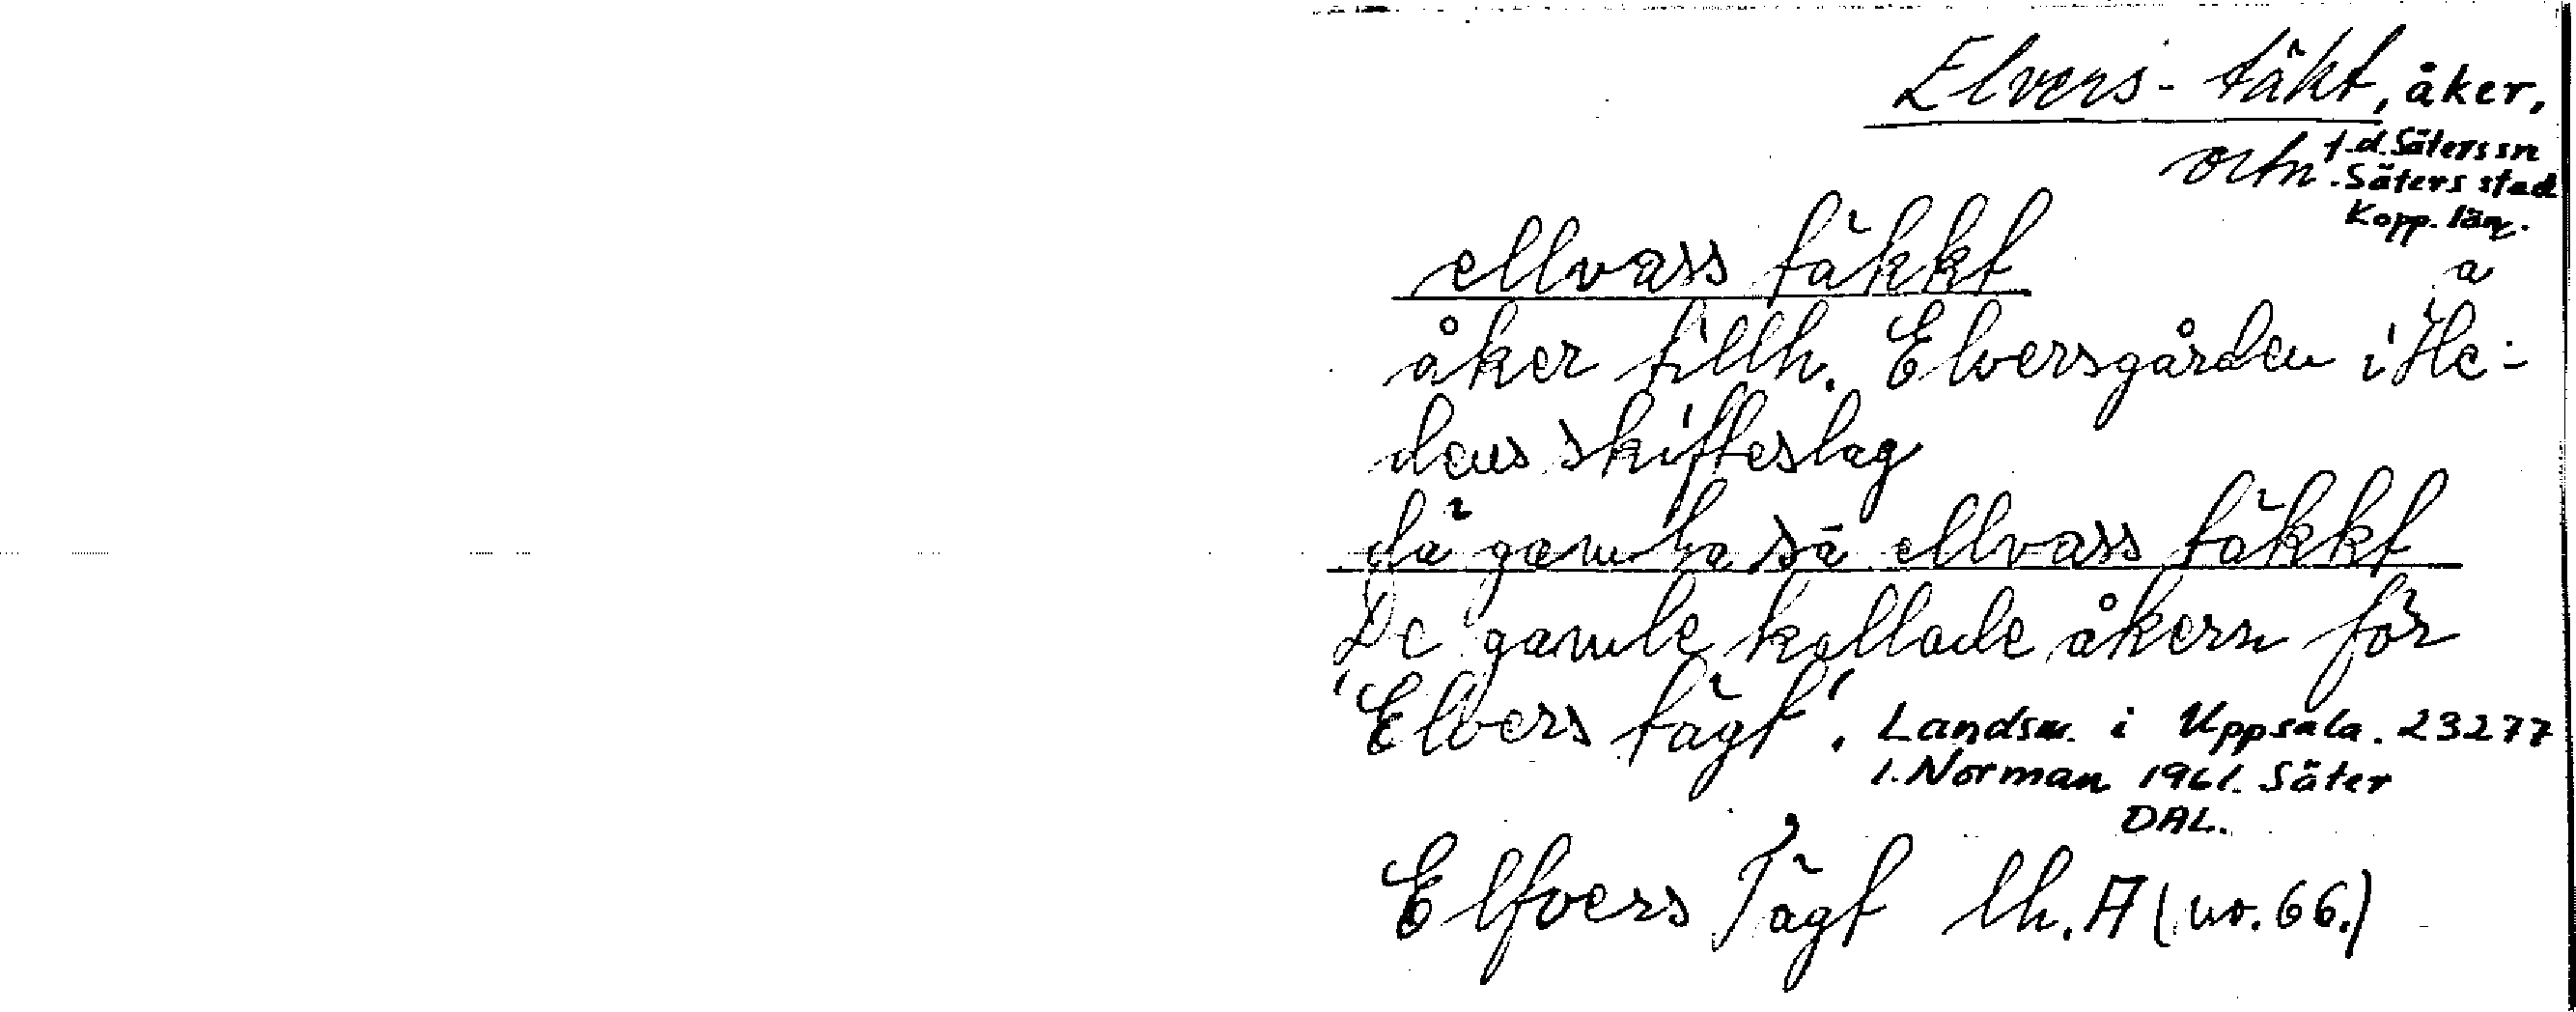 Elvers-täkt, åker,
f.d. Säters sn
ortn. Säters stad
Kopp. län.
ellvass täkkt
a
åker tillh. Elversgården i He-
dens skifteslag
då gamba sä ellvass täkkt
De gamle kallade åkern för
'Elvers tägt'. Landsm. i Uppsala. 23277
I. Norman 1961. Säter
DAL.
Elfvers Tägt lh. A (no. 66.)